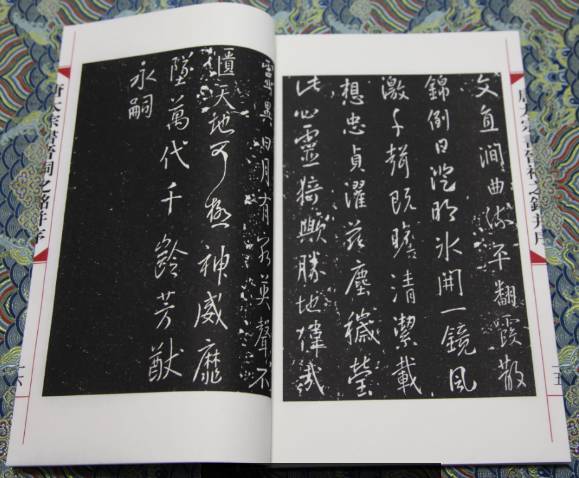 唐太宗書晉祠之銘并序
一五
文直澗曲流平翻霞散
錦倒日澄明冰開一鏡風
激千聲既瞻清潔載
想忠貞濯茲塵穢瑩
此心靈猗歟勝地偉哉
靈異日月有窮英聲不
匱天地可極神威靡
墜萬代千齡芳猷
永嗣
唐太宗書晉祠之銘并序
一六